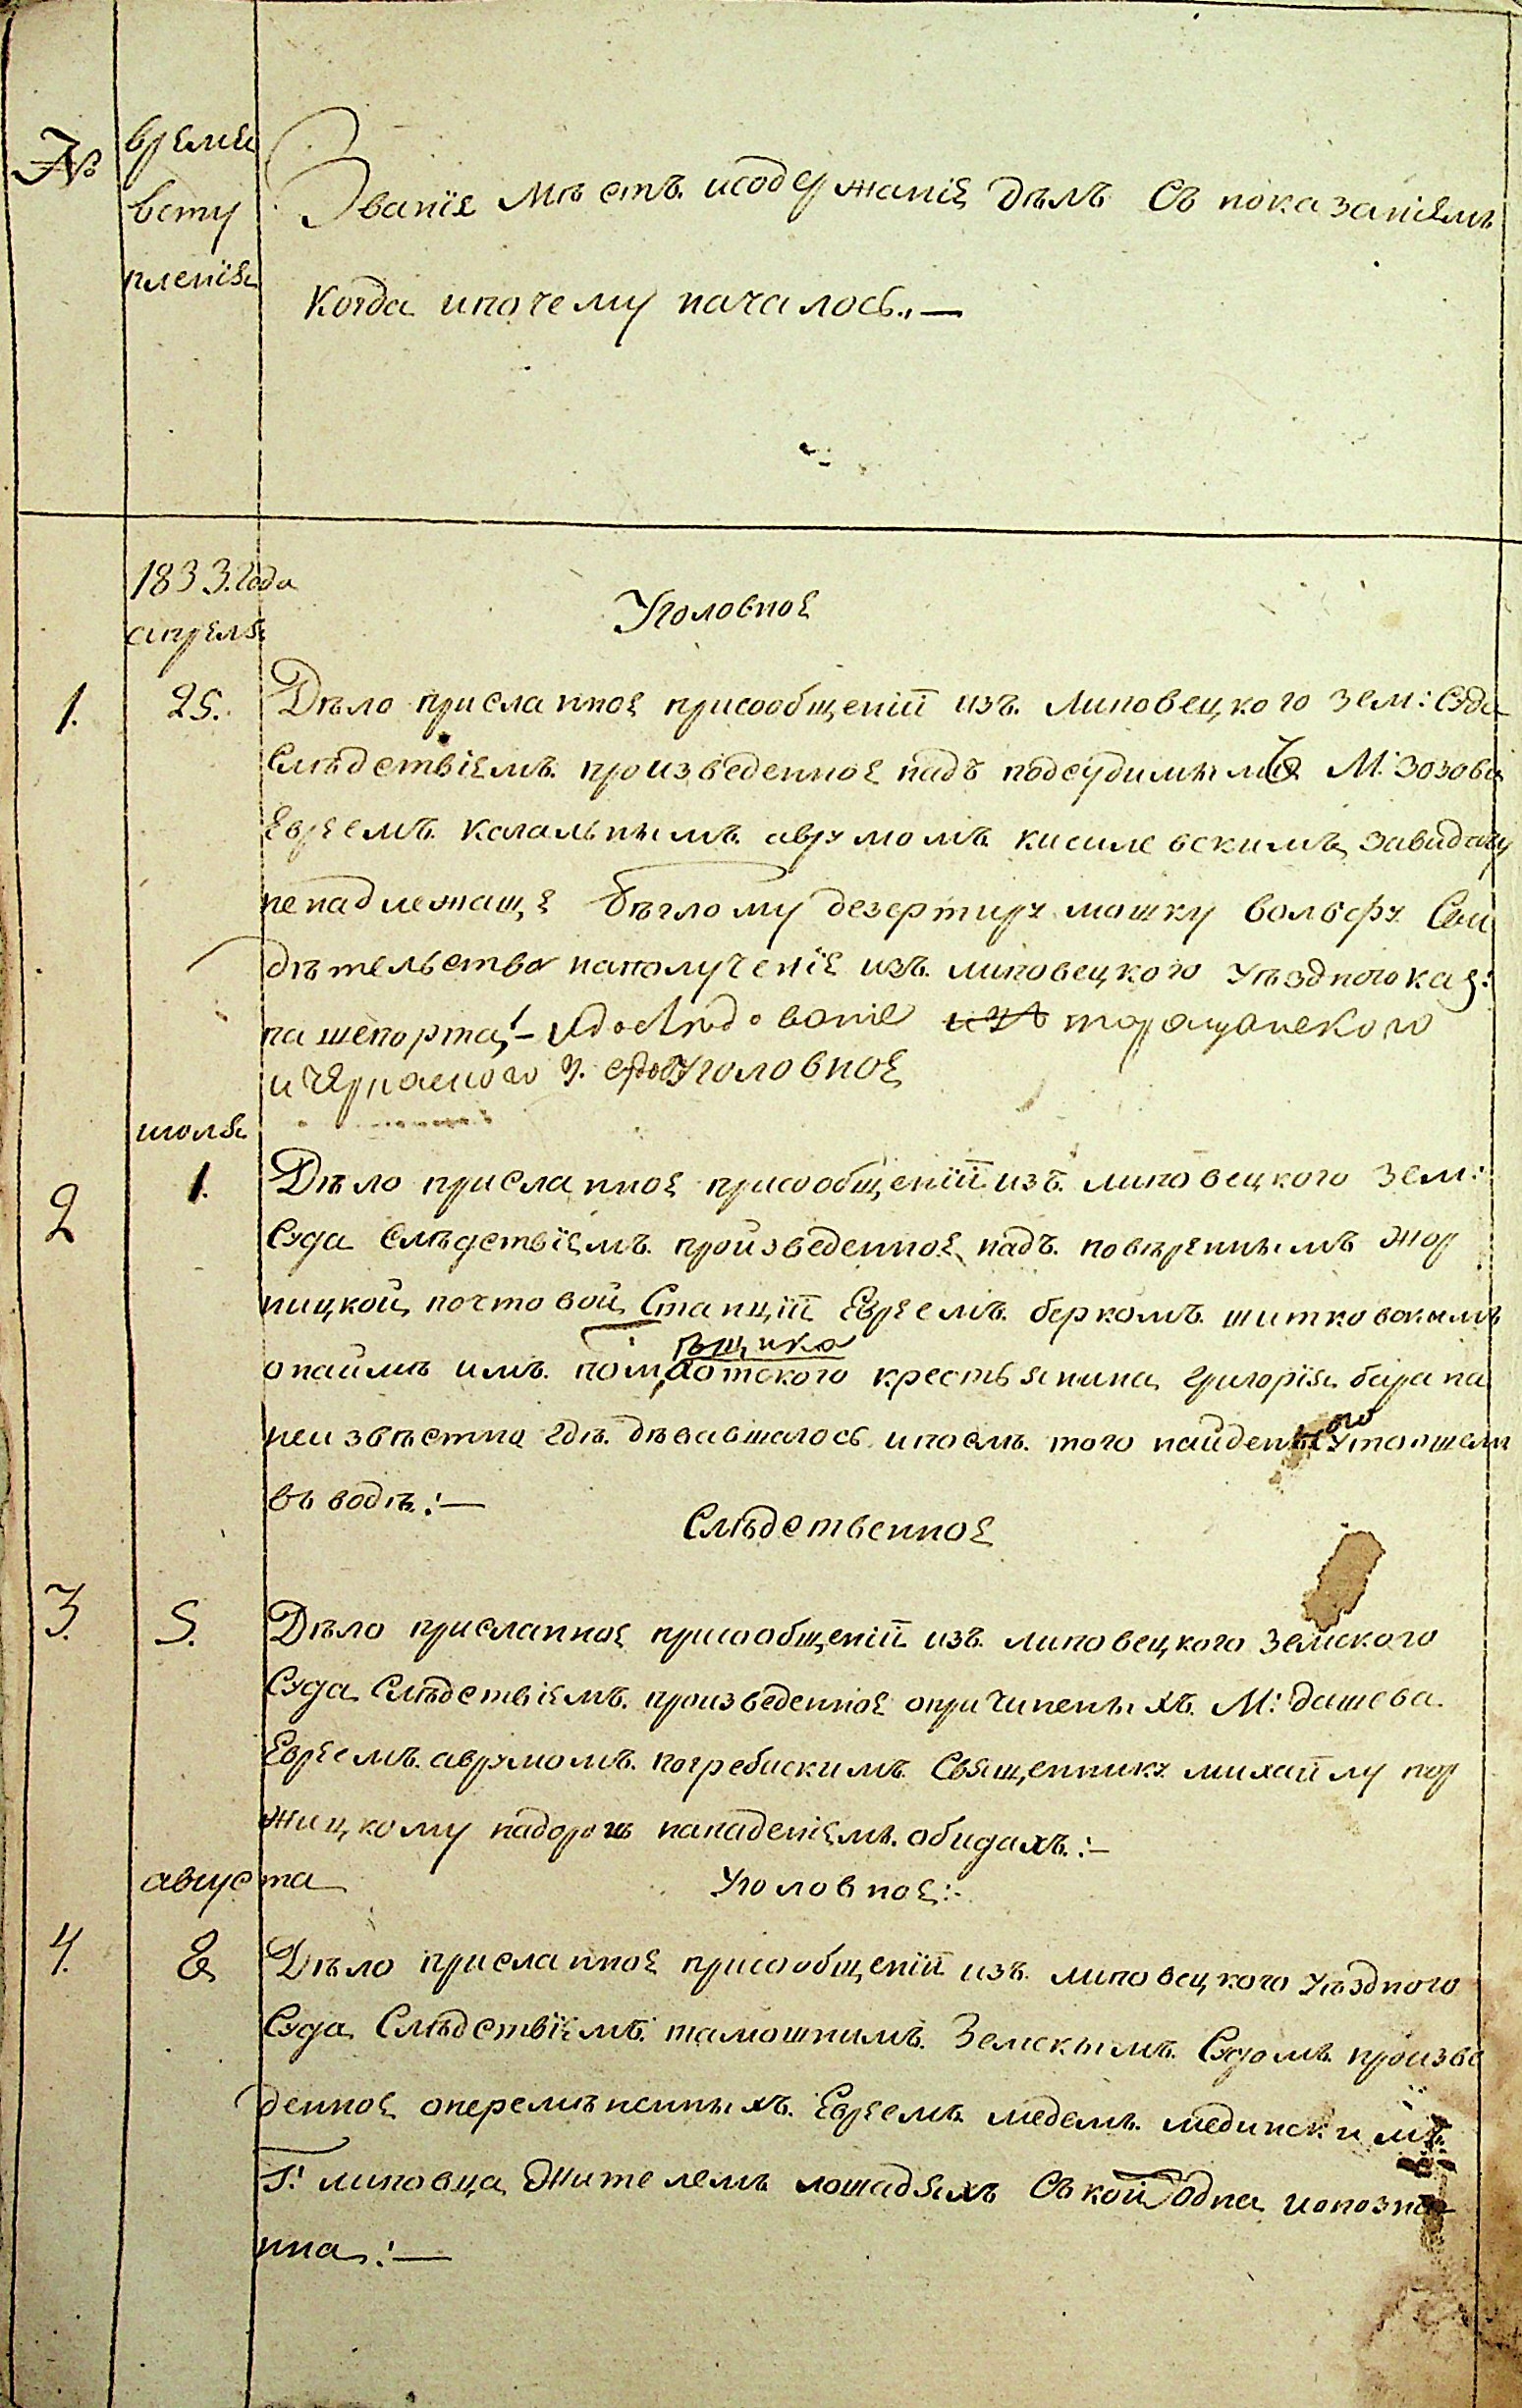 № время вступления
Званіе мѣстъ. исодержаніе дѣлъ Съ показаніемъ
Когда ипочему началось.,—
1833. Года
апреля
Уголовное
1. 25. Дѣло присланное присообщеніи изъ. липовецкого зем: Суда
Слѣдствіемъ. произведенное надъ подсудимымъ М: Зозова
Евреемъ. кагальнымъ. аврумомъ. кисилевскимъ, завидачу
ненадлежаще бѣглому дезертиру мошку вольфу Сви
дѣтельства наполученіе изъ. липовецкого уѣздного каз:
пашепорта,!—
и уголовное
июля
2 1. Дѣло присланное присообщеніи изъ. липовецкого зем:
Суда Слѣдствіемъ. произведенное, надъ. повѣреннымъ жор
ницкой, почтовой, Станціи Евреемъ. беркомъ. шитковскимъ
онаймѣ имъ. пом. крестьянина, григорія. барана
неизвѣстно гдѣ. дѣвавшагось. ипослѣ. того найден утопшем
въ водѣ.:—
Слѣдственное
3. 5. Дѣло присланное присообщеніи изъ. липовецкого Земского
Суда, Слѣдствіемъ. произведенное опричиненыхъ. М: дашева.
Евреемъ. аврумомъ. погребискимъ. Священнику михайлу пор
жицкому надорогѣ нападеніемъ. обидахъ.:—
августа
Уголовное:-
4. 8 Дѣло присланное присообщеніи изъ. липовецкого уѣздного
Суда, Слѣдствіемъ. тамошнимъ. Земскымъ. Судомъ. произве
денное оперемѣненныхъ. Евреемъ. медемъ. мединскимъ.
Г: липовца, жителемъ лошадяхъ Съ кои одна иопозна
нна,:—